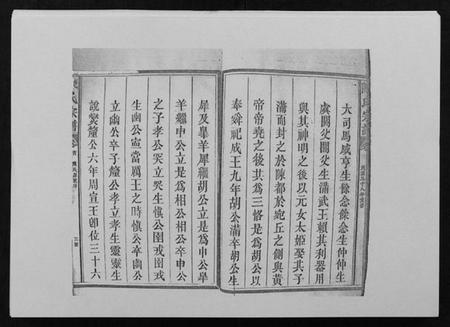 大司馬咸亨生餘念餘念生仲仲生
虞閼父閼父生滿武王賴其利器用
與其神明之後以元女太姬娶其子
滿而封之於陳都於宛丘之側與黃
帝帝堯之後其為三恪是為胡公以
奉舜祀成王九年胡公滿卒胡公生
犀及臯羊犀繼胡公立是為申公臯
羊繼申公立是為相公相公卒申公
之子孝公突立突生慎公圉戎圉戎
生幽公寧當厲王之時慎公卒幽公
立幽公卒子釐公孝立孝生靈靈生
說燮釐公六年周宣王卽位三十六
氏宗譜